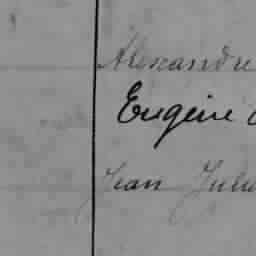 Alexandre
Eugène
Jean Jules